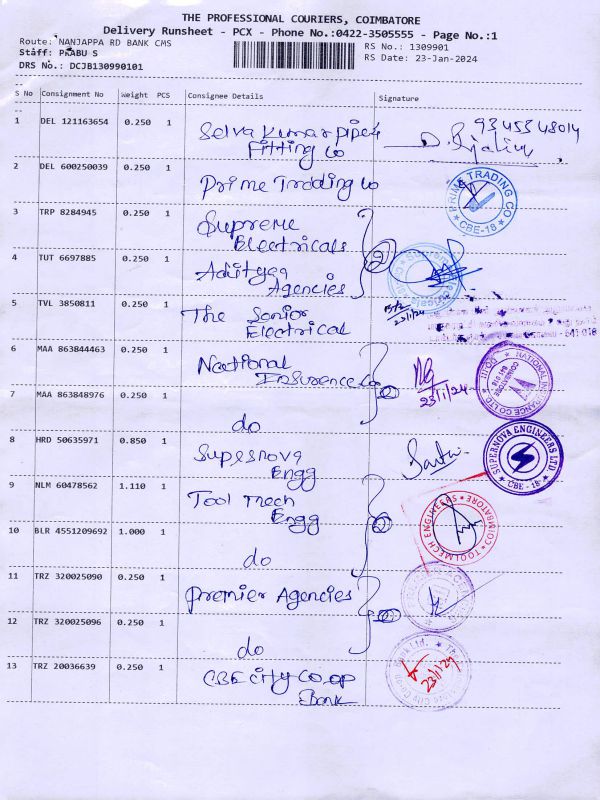 THE PROFESSIONAL COURIERS, COIMBATORE
Delivery Runsheet - PCX - Phone No.:0422-3505555 - Page No.:1
Route: NANJAPPA RD BANK CMS
RS No.: 1309901
Staff: PRABU S
RS Date: 23-Jan-2024
DRS No.: DCJB130990101
S No Consignment No Weight PCS Consignee Details Signature
1 DEL 121163654 0.250 1 Selva Kumar pipes
Fitting co
9345348014
2 DEL 600250039 0.250 1 Prime Trading co
PRIME TRADING CO
CBE-18
3 TRP 8284945 0.250 1 Supreme
Electricals
4 TUT 6697885 0.250 1 Adityaa
Agencies
5 TVL 3850811 0.250 1 The Senior
Electrical
23/1/24
6 MAA 863844463 0.250 1 National
Insurence co
23/1/24
NATIONAL INSURANCE CO LTD
7 MAA 863848976 0.250 1 do
8 HRD 50635971 0.850 1 Supernova
Engg
SUPERNOVA ENGINEERS LTD
CBE - 18
9 NLM 60478562 1.110 1 Tool mech
Engg
TOOLMECH ENGINEERS
COIMBATORE
10 BLR 4551209692 1.000 1 do
11 TRZ 320025090 0.250 1 premier Agencies
12 TRZ 320025096 0.250 1 do
13 TRZ 20036639 0.250 1 CBE city co op
Bank
23/1/24